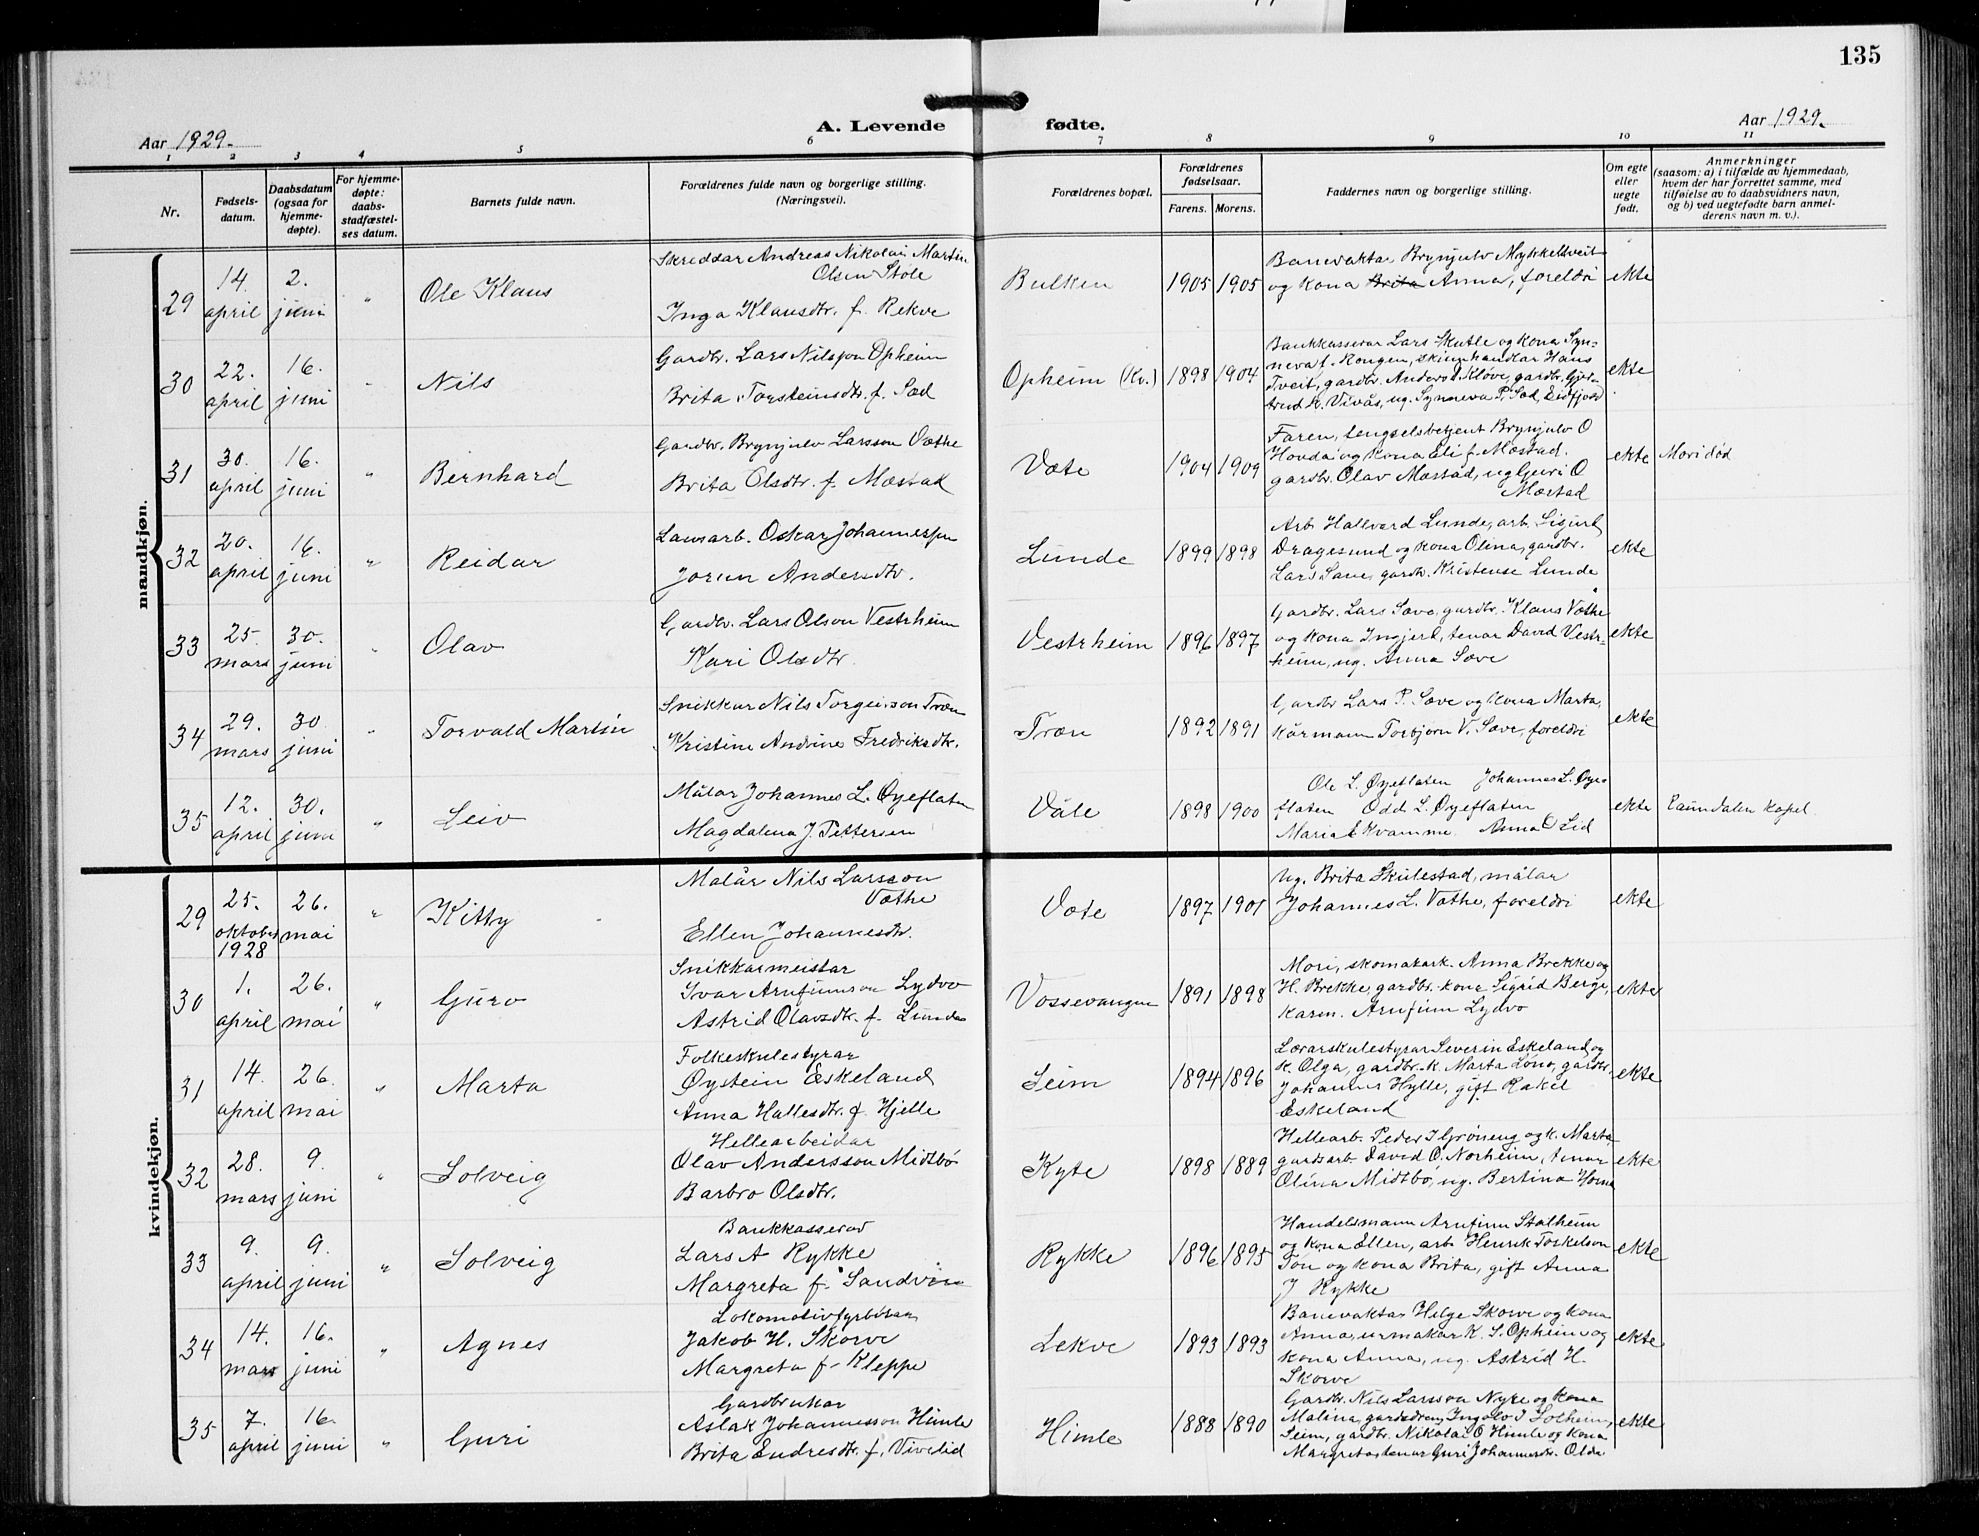 135
Aar 1929.
A. Levende
fødte.
Aar 1929.
1 2 3 4 5 6 7 8 9 10 11
Nr.
Fødsels-
datum.
Daabsdatum
(ogsaa for
hjemme-
døpte).
For hjemme-
døpte:
daabs-
stadfæstel-
ses datum.
Barnets fulde navn.
Forældrenes fulde navn og borgerlige stilling.
(Næringsvei).
Forældrenes bopæl.
Forældrenes
fødselsaar.
Farens. Morens.
Faddernes navn og borgerlige stilling.
Om egte
eller
uegte
født.
Anmerkninger
(saasom: a) i tilfælde av hjemmedaab,
hvem der har forrettet samme, med
tilføielse av to daabsvidners navn,
og b) ved uegtefødte barn anmel-
derens navn m. v.).
mandkjøn.
29
14.
april
2.
juni
"
Ole Klaus
Skreddar Andreas Nikolai Martin
Olsen Støle
Inga Klausdtr. f. Rekve
Bulken
1905 1905
Banevaktar Brynjulv Mykkeltveit
og kona Brita Anna, foreldri
ekte
30
22.
april
16.
juni
"
Nils
Gardbr. Lars Nilsson Opheim
Brita Torsteinsdtr. f. Sæd
Opheim (Kv.)
1898 1904
Bankkasserar Lars Skutle og kona Syn-
neva f. Rongen, skinnhandlar Hans
Tveit, gardbr. Anders Kløve, gardbr. Gjer-
trud K. Vivås, ug. Synneva P. Sæd, Eidfjord
ekte
31
30.
april
16.
juni
"
Bernhard
Gardbr. Brynjulv Larsson Væthe
Brita Olsdtr. f. Mæstad
Væte
1904 1909
Faren, fengselsbetjent Brynjulv O
Honda og kona Eli f. Mæstad.
gardbr. Olav Mæstad, ug Guri O
Mæstad
ekte
Mori død
32
20.
april
16.
juni
"
Reidar
Lausarb. Oskar Johannesson
Jorun Andersdtr.
Lunde
1899 1898
Arb. Hallvard Lunde, arb. Sigurd
Dragesund og kona Olina, gardbr.
Lars Save, gardk. Kristense Lunde
ekte
33
25.
mars
30.
juni
"
Olav
Gardbr. Lars Olson Vestrheim
Kari Olsdtr.
Vestrheim
1896 1897
Gardbr. Lars Sæve, gardbr. Klaus Væthe
og kona Ingjerd, tenar David Vestr-
heim, ug. Anna Sæve
ekte
34
29.
mars
30
juni
"
Torvald Martin
Snikkar Nils Torgeirson Træn
Kristine Andrine Fredriksdtr.
Træn
1892 1891
Gardbr Lars P. Sæve og kona Marta,
Kårmann Torbjørn V. Sæve, foreldri
ekte
35
12.
april
30.
juni
"
Leiv
Målar Johannes L. Øyeflaten
Magdalena J. Pettersen
Våte
1898 1900
Ole L. Øyeflaten Johannes L. Øye-
flaten Odd L. Øyeflaten
Maria E Kvamme. Anna O Lid
ekte
Raundalen Kapel.
kvindekjøn.
29
25.
oktober
1928
26.
mai
"
Kitty
Målar Nils Larsson
Væthe
Ellen Johannesdtr.
Væte
1897 1901
Ug. Brita Skulestad, målar
Johannes L. Væthe, foreldri
ekte
30
1.
april
26.
mai
"
Guro
Snikkarmeistar
Ivar Arnfinnson Lydvo
Astrid Olavsdtr. f. Lunde
Vossevangen
1891 1898
Mori, skomakark. Anna Brekke og
H. Brekke, gardbr.-kona Sigrid Berge,
karm. Arnfinn Lydvo
ekte
31
14.
april
26.
mai
"
Marta
Folkeskulestyrar
Øystein Eskeland
Anna Hallesdtr. f. Hjelle
Seim
1894 1896
Lærarskulestyrar Severin Eskeland og
k. Olga, gardbr.-k. Marta Løno, gardbr.
Johannes Hylle, gift Rakel
Eskeland
ekte
32
28.
mars
9.
juni
"
Solveig
Hellearbeidar
Olav Andersson Midtbø
Barbro Olsdtr.
Kyte
1898 1889
Hellearb. Peder I Grøneng og k. Marta
gardsarb. David O. Norheim, tenar
Olina Midtbø, ug. Bertina Horna
ekte
33
9.
april
9.
juni
"
Solveig
Bankkasserar
Lars A Rykke
Margreta f. Sandvin
Rykke
1896 1895
Handelsmann Arnfinn Stalheim
og kona Ellen, arb. Henrik Toskelson
Tøn og kona Brita, gift Anna
J Rykke
ekte
34
14.
mars
16.
juni
"
Agnes
Lokomotivfyrbøtar
Jakob H. Skorve
Margreta f. Kleppe
Lekve
1893 1893
Banevaktar Helge Skorve og kona
Anna, urmakar K. S. Opheim og
kona Anna, ug. Astrid H.
Skorve
ekte
35
7.
april
16.
juni
"
Guri
Gardbrukar
Aslak Johannesson Himle
Brita Endresdtr. f. Vivelid
Himle
1888 1890
Gardbr. Nils Larsson Nyre og kona
Malina, gardsdreng Ingolv I Solheim,
Seim, gardbr. Nikolai O Himle og kona
Margreta, tenar Guri Johannesdtr. Olde
ekte